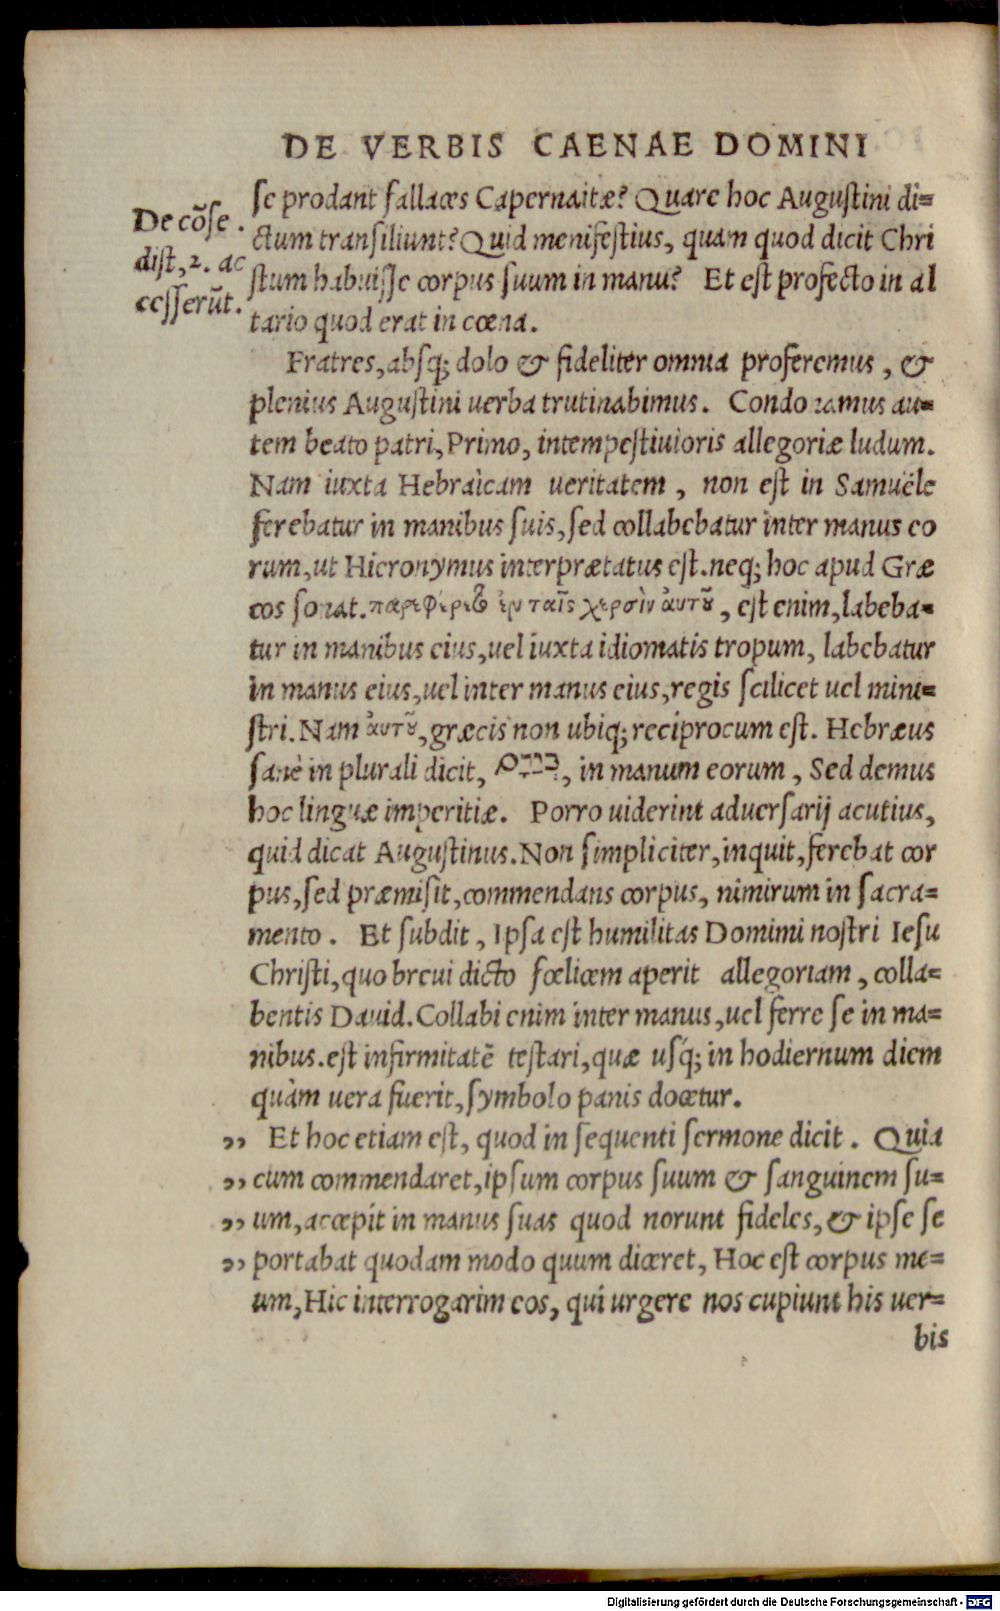 DE VERBIS CAENAE DOMINI
De cõse.
dist, 2. ac
cesserũt.
se prodant fallaces Capernaitæ? Quare hoc Augustini di=
ctum transiliunt? Quid menifestius, quam quod dicit Chri
stum habuisse corpus suum in manu? Et est profecto in al
tario quod erat in cœna.
Fratres, absq; dolo & fideliter omnia proferemus, &
plenius Augustini uerba trutinabimus. Condonamus au=
tem beato patri, Primo, intempestiuioris allegoriæ ludum.
Nam iuxta Hebraicam ueritatem, non est in Samuële
ferebatur in manibus suis, sed collabebatur inter manus eo
rum, ut Hieronymus interprætatus est. neq; hoc apud Græ
cos sonat. παρεφέρετο ἐν ταῖς χερσὶν ἀυτοῦ, est enim, labeba=
tur in manibus eius, uel iuxta idiomatis tropum, labebatur
in manus eius, uel inter manus eius, regis scilicet uel mini=
stri. Nam ἀυτοῦ, græcis non ubiq; reciprocum est. Hebræus
sanè in plurali dicit, בידם, in manum eorum, Sed demus
hoc linguæ imperitiæ. Porro uiderint aduersarij acutius,
quid dicat Augustinus. Non simpliciter, inquit, ferebat cor
pus, sed præmisit, commendans corpus, nimirum in sacra=
mento. Et subdit, Ipsa est humilitas Domimi nostri Iesu
Christi, quo breui dicto fœlicem aperit allegoriam, colla=
bentis Dauid. Collabi enim inter manus, uel ferre se in ma=
nibus. est infirmitatẽ testari, quæ usq́; in hodiernum diem
quàm uera fuerit, symbolo panis docetur.
,, Et hoc etiam est, quod in sequenti sermone dicit. Quia
,, cum commendaret, ipsum corpus suum & sanguinem su=
,, um, accepit in manus suas quod norunt fideles, & ipse se
,, portabat quodam modo quum diceret, Hoc est corpus me=
um, Hic interrogarim eos, qui urgere nos cupiunt his uer=
bis
Digitalisierung gefördert durch die Deutsche Forschungsgemeinschaft - DFG